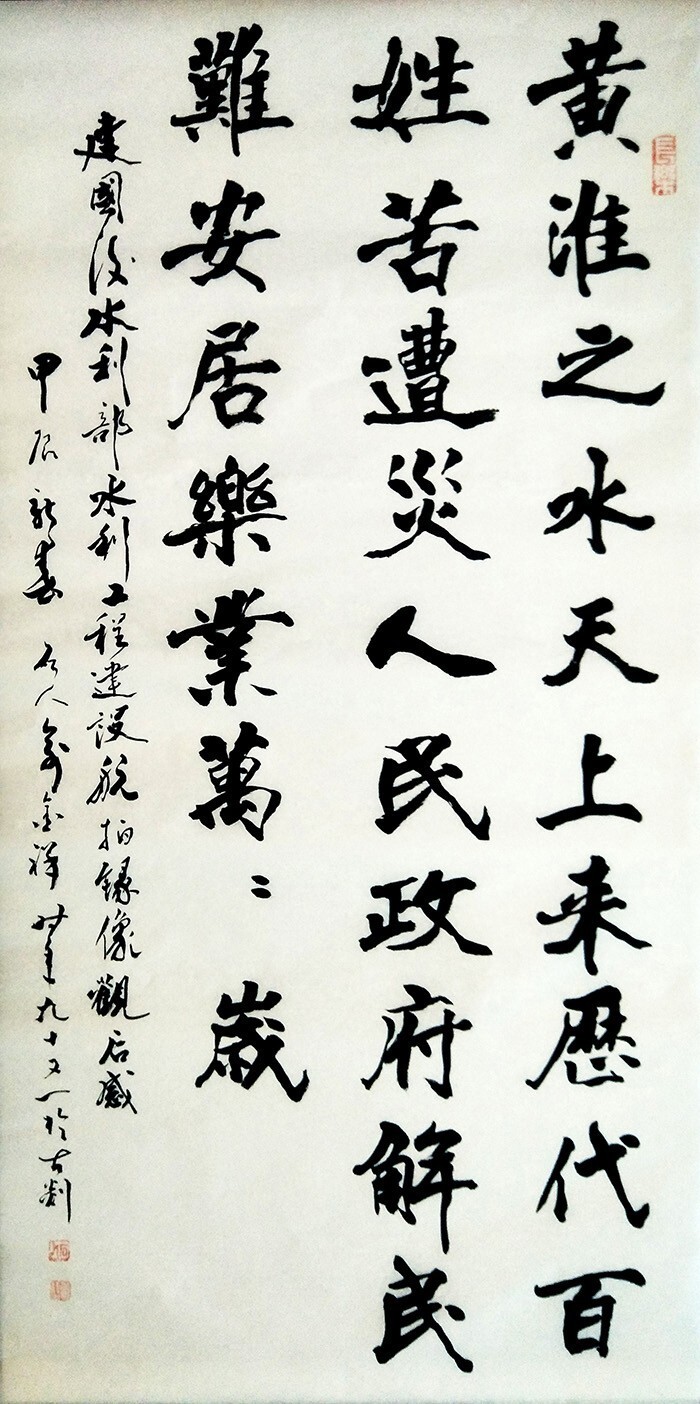 黄淮之水天上来歷代百
姓苦遭災人民政府解民
難安居樂業萬〻歲
建國後水利部水利工程建设航拍錄像觀后感
甲辰新春 石人俞金祥 時年九十又一於古剡